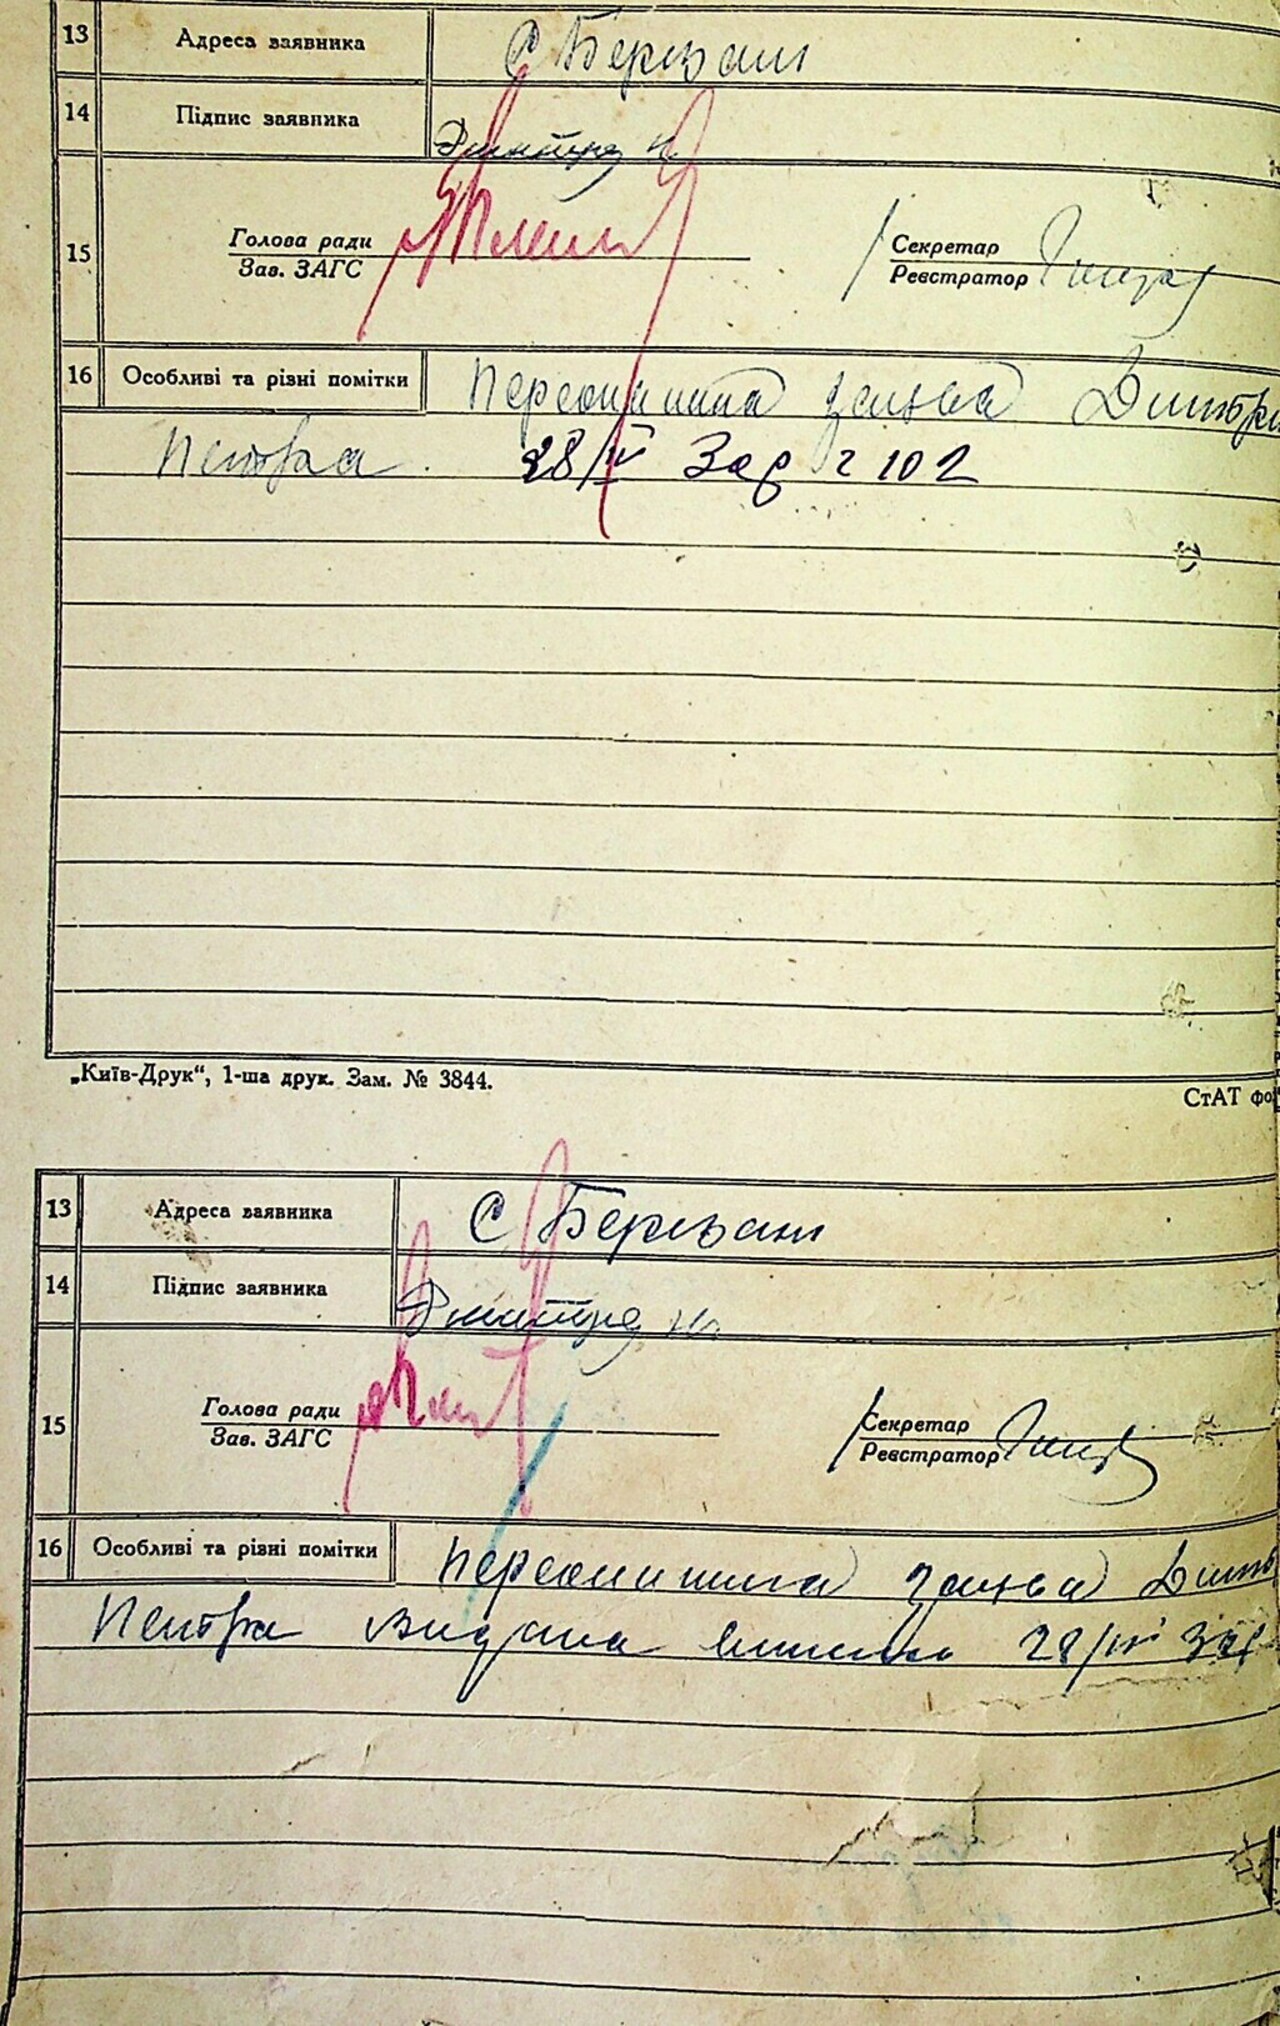 13 Адреса заявника С Березани
14 Підпис заявника
15 Голова ради
Зав. ЗАГС
Секретар
Реєстратор
16 Особливі та різні помітки заява
Петра 28/IV Зар 2 102
„Київ-Друк“, 1-ша друк. Зам. № 3844.
СтАТ фо
13 Адреса заявника С Березани
14 Підпис заявника
15 Голова ради
Зав. ЗАГС
Секретар
Реєстратор
16 Особливі та різні помітки заява
Петра Видана 28/IV